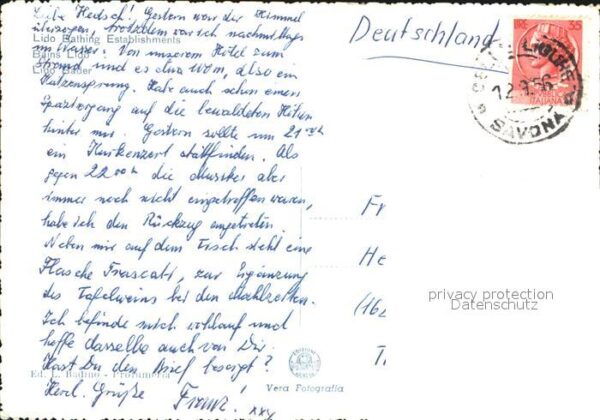 Deutschland
Liebe Hertus! Gestern war der Himmel
überzogen, trotzdem war ich nachmittags
im Wasser. Von unserem Hotel zum
Strand sind es etwa 100m, also ein
Katzensprung. Habe auch schon einen
Spaziergang auf die bewaldeten Höhen
hinter mir. Gestern sollte um 21 Uhr
ein Kurkonzert stattfinden. Als
gegen 22 00h die Musiker aber
immer noch nicht eingetroffen waren,
habe ich den Rückzug angetreten.
Neben mir auf dem Tisch steht eine
Flasche Frascati, zur Ergänzung
des Tafelweins bei den Mahlzeiten.
Ich befinde mich wohlauf und
hoffe dasselbe auch von Dir.
Hast Du den Brief besorgt?
Herzl. Grüße Franz! xxx
Lido Bathing Establishments
Bains Lido
Lido Bäder
Ed. L. Badino - Profumeria
Vera Fotografia
ITALIANA
LIGURE
SAVONA
Fr
He
(16
T
privacy protection
Datenschutz